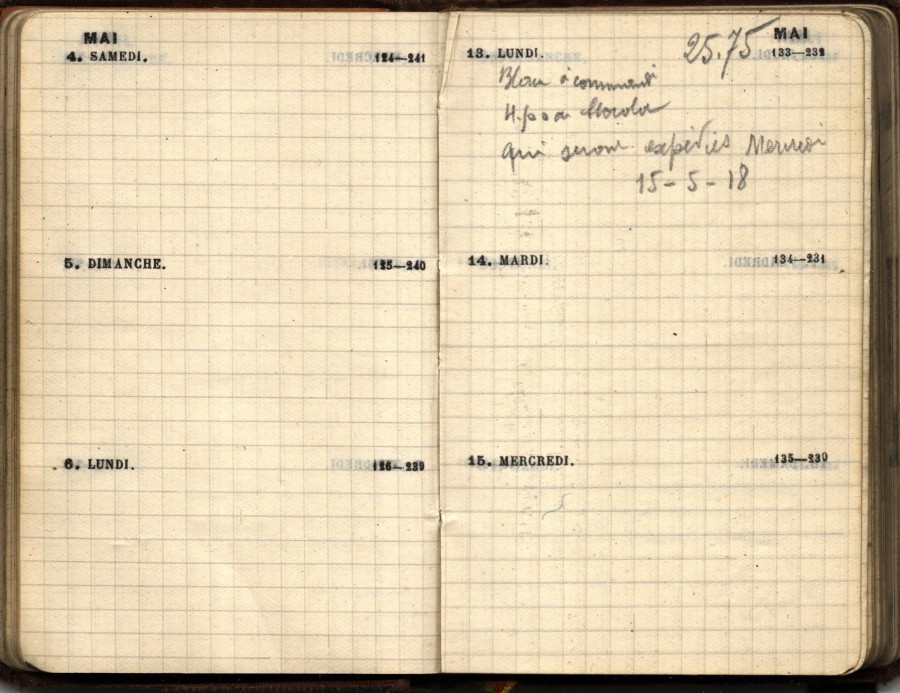 MAI
4. SAMEDI. 124—241
5. DIMANCHE. 125—240
6. LUNDI. 126—239
MAI
13. LUNDI. 25.75 133—232
à
qui seront expédiés Mercredi
15-5-18
14. MARDI. 134—231
15. MERCREDI. 135—230